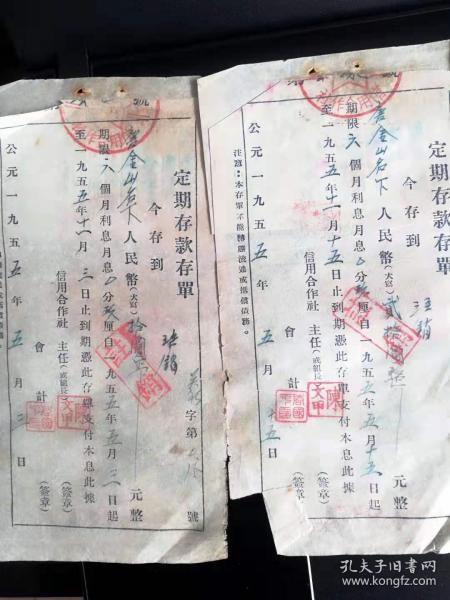 定期存款存單
今存到
金山名下人民幣(大寫)貳拾圓整元整
期限六個月利息月息0分玖厘自一九五五年五月十五日起
至一九五五年十一月十五日止到期憑此存單支付本息此據
信用合作社 主任(或組長) (簽章)
會計 (簽章)
公元一九五五年五月十五日
注意:本存單不能轉讓流通或抵償債務。
注銷
陳文甲
定期存款存單
今存到
金山名下人民幣(大寫)拾圓元整
期限六個月利息月息0分玖厘自一九五五年五月三日起
至一九五五年十一月三日止到期憑此存單支付本息此據
信用合作社 主任(或組長) (簽章)
會計 (簽章)
公元一九五五年五月二日
字第 號
注銷
陳文甲
孔夫子旧书网
www.kongfz.com